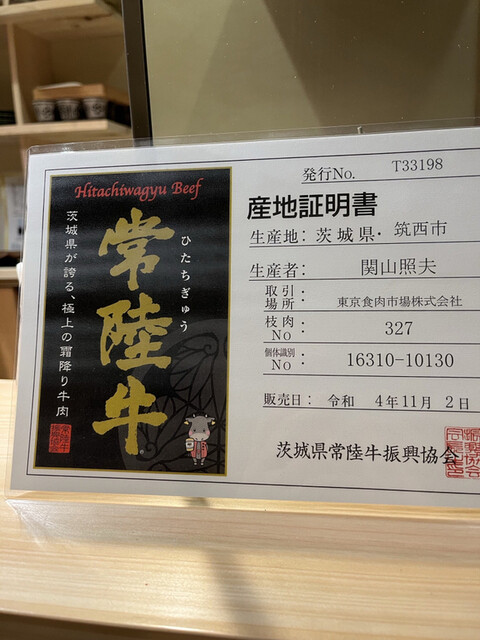 Hitachiwagyu Beef
常陸牛
ひたちぎゅう
茨城県が誇る、極上の霜降り牛肉
常陸牛
発行No. T33198
産地証明書
生産地：茨城県・筑西市
生産者： 関山照夫
取引場所： 東京食肉市場株式会社
枝肉No ： 327
個体識別No ： 16310-10130
販売日： 令和 4年11月 2日
茨城県常陸牛振興協会